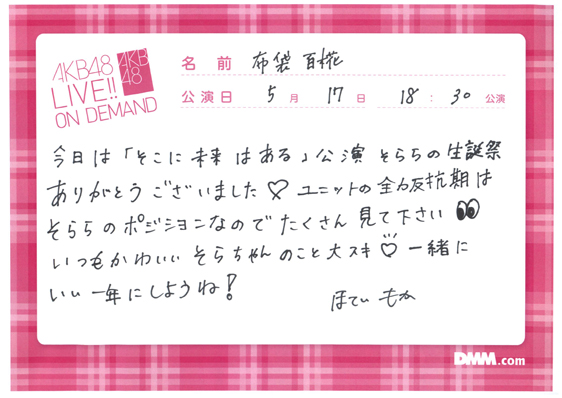 AKB48
LIVE!!
ON DEMAND
AKB
48
名前 布袋 百椛
公演日 5月17日 18:30公演
今日は「そこに未来はある」公演 そららの生誕祭
ありがとうございました♡ ユニットの全力反抗期は
そららのポジションなのでたくさん見て下さい👀
いつもかわいいそらちゃんのこと大スキ♡ 一緒に
いい一年にしようね!
ほてい もか
DMM.com